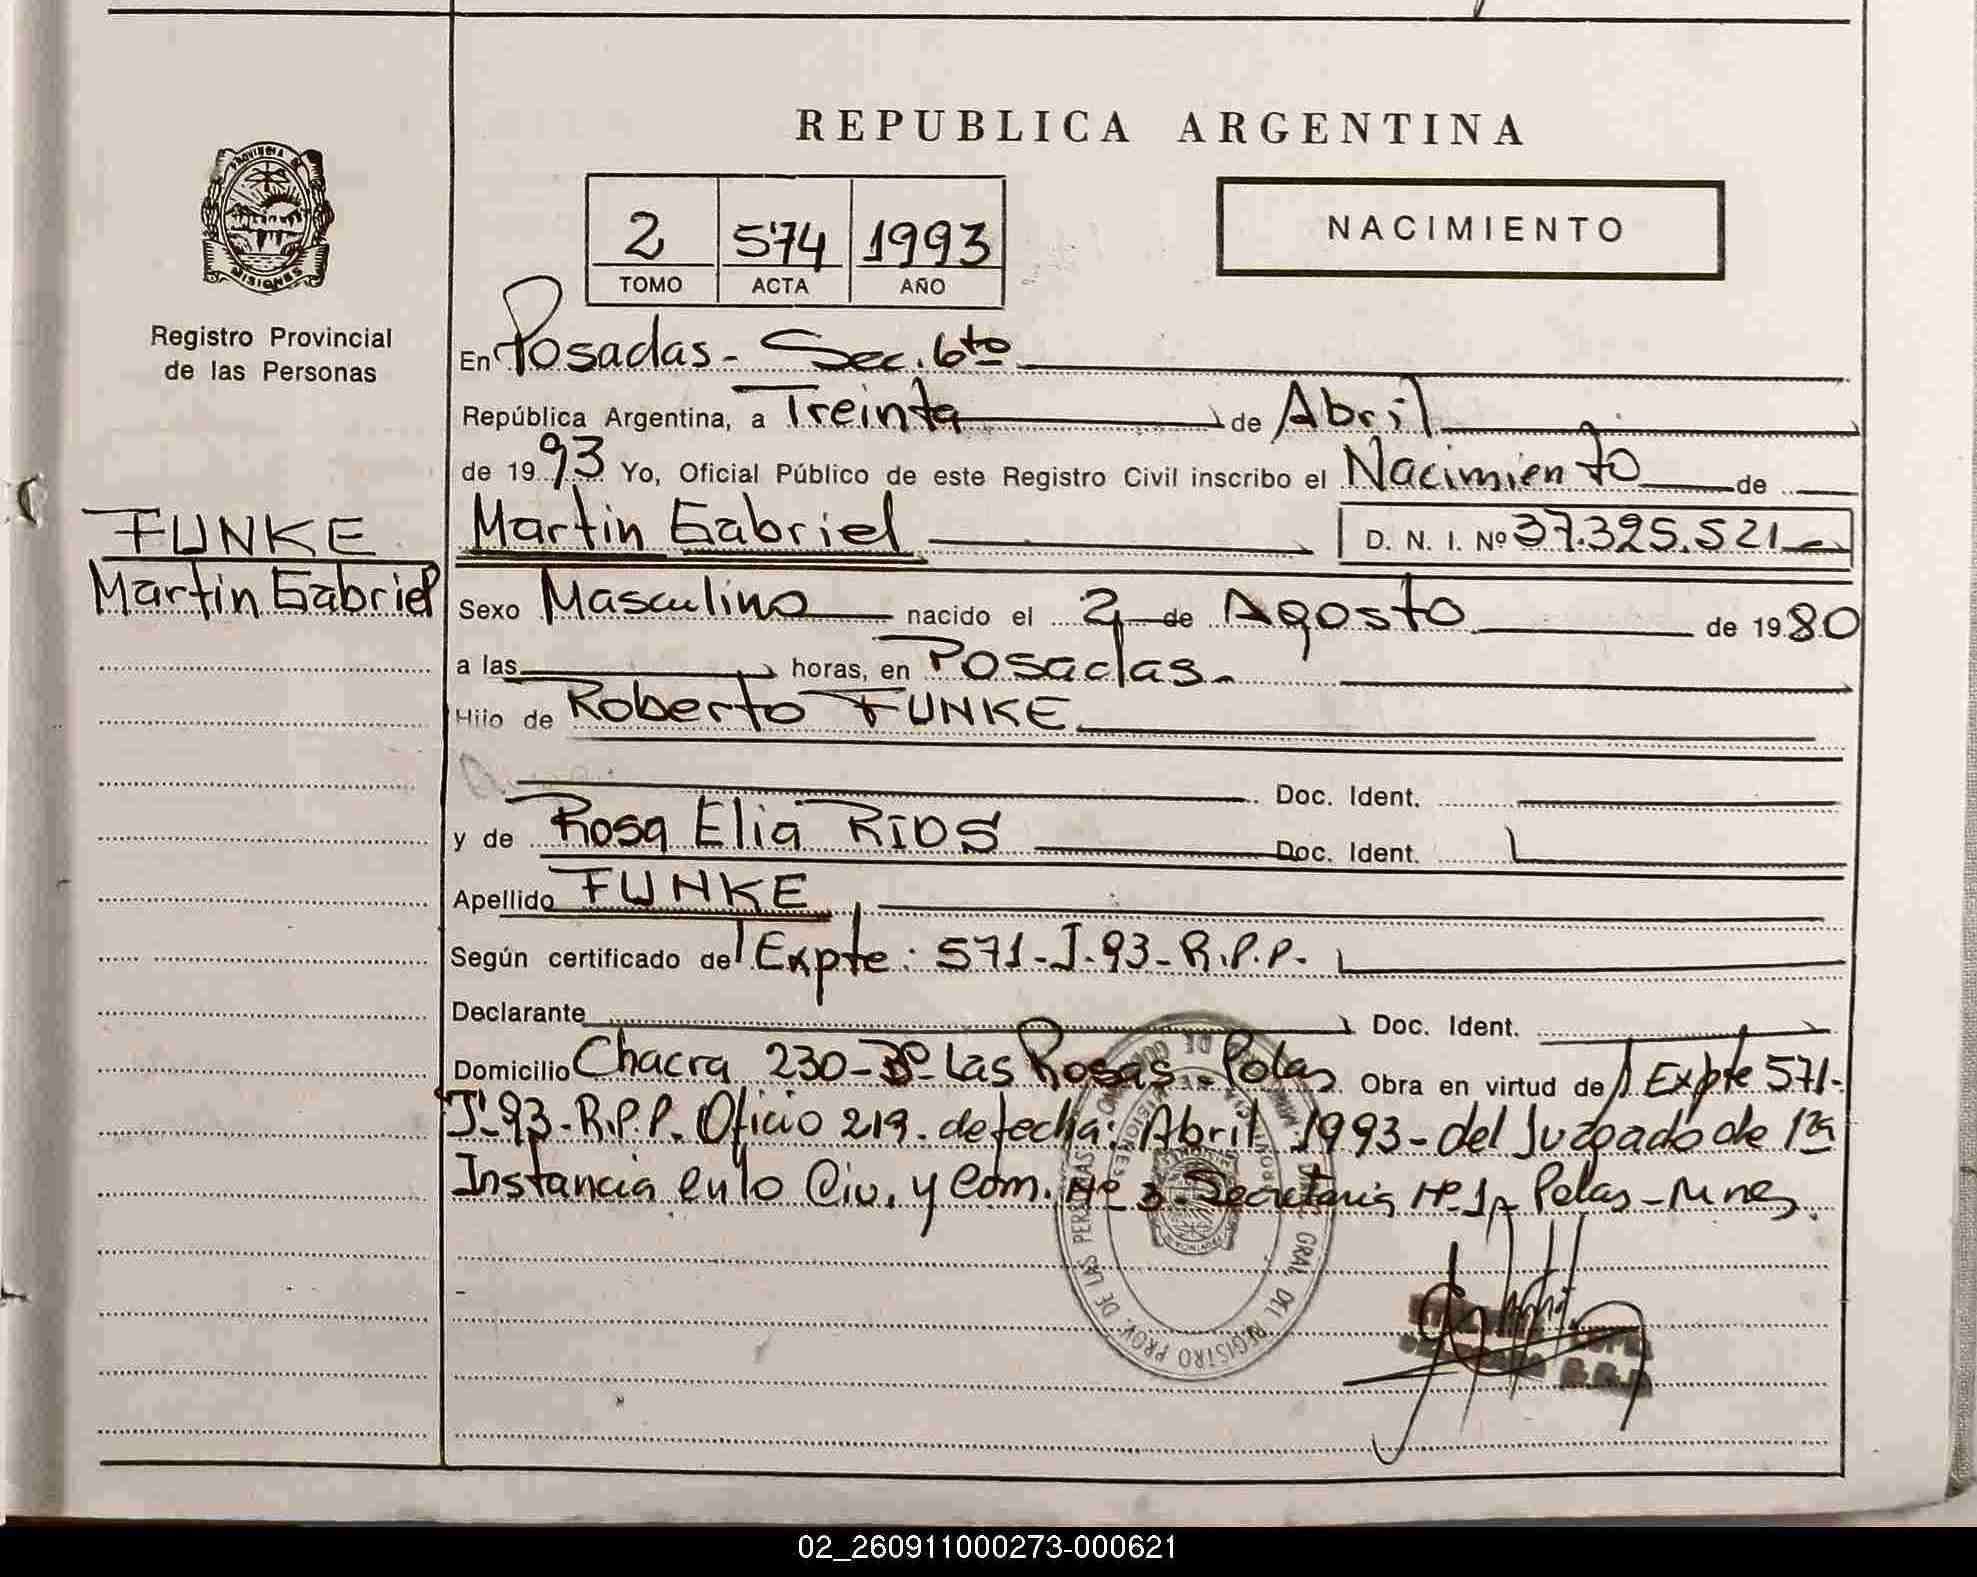 REPUBLICA ARGENTINA
PROVINCIA DE
MISIONES
Registro Provincial
de las Personas
2 574 1993
TOMO ACTA AÑO
NACIMIENTO
En Posadas - Sec. 6to
República Argentina, a Treinta de Abril
de 1993 Yo, Oficial Público de este Registro Civil inscribo el Nacimiento de
FUNKE
Martin Gabriel
Martin Gabriel D. N. I. Nº 37.325.521
Sexo Masculino nacido el 2 de Agosto de 1980
a las horas, en Posadas.
Hijo de Roberto FUNKE
Doc. Ident.
y de Rosa Elia RIOS Doc. Ident.
Apellido FUNKE
Según certificado del Expte: 571-J-93-R.P.P.
Declarante Doc. Ident.
Domicilio Chacra 230-Bº Las Rosas - Pdas Obra en virtud de Expte 571-
J-93-R.P.P. Oficio 219. de fecha: Abril 1993 - del Juzgado de 1ra
Instancia en lo Civ. y Com. Nº 3 - Secretaria Nº 1 - Pdas - Mnes.
GRAL. DEL REGISTRO PROV. DE LAS PERSONAS
02_260911000273-000621